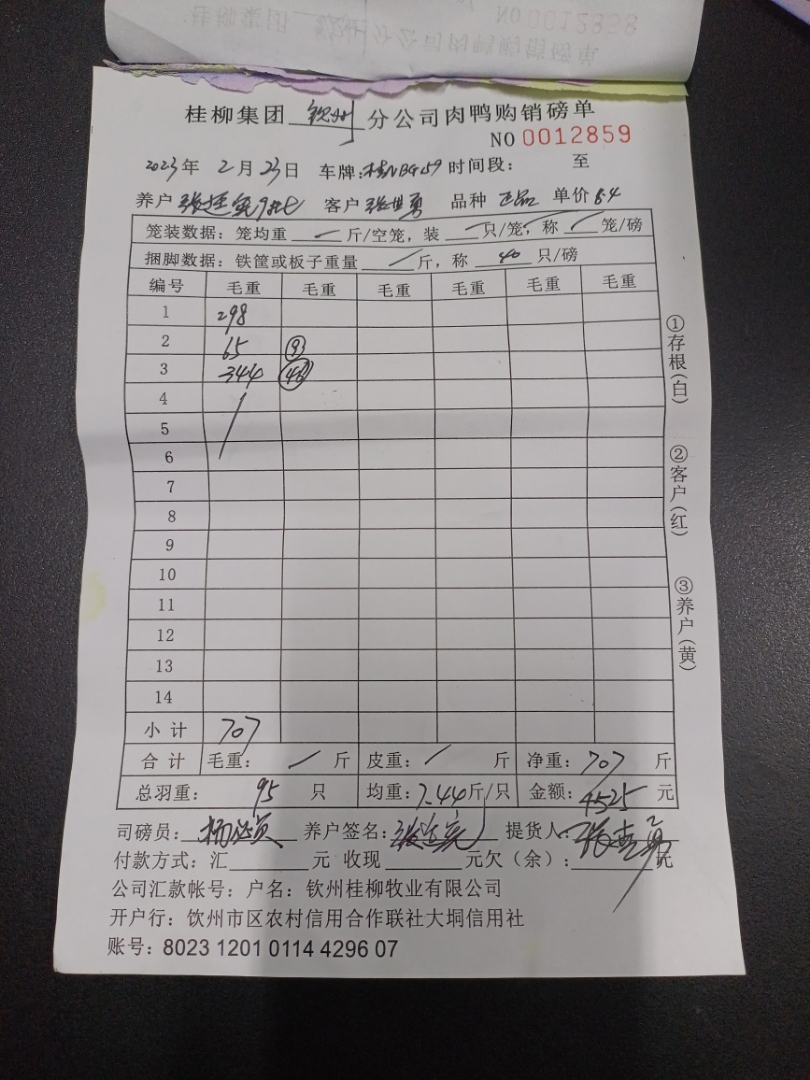 桂柳集团 钦州 分公司肉鸭购销磅单
NO 0012859
2023年 2月 23日 车牌: 时间段: 至
养户 客户 张世勇 品种 正品 单价 6.4
笼装数据: 笼均重 / 斤/空笼, 装 / 只/笼, 称 / 笼/磅
捆脚数据: 铁筐或板子重量 / 斤, 称 40 只/磅
编号 毛重 毛重 毛重 毛重 毛重 毛重
1 298
2 65 ⑨
3 344 46
4
5
6
7
8
9
10
11
12
13
14
小计 707
合计 毛重: / 斤 皮重: / 斤 净重: 707 斤
总羽重: 95 只 均重: 7.44斤/只 金额: 4525 元
司磅员: 养户签名: 提货人:
付款方式: 汇 元 收现 元欠(余): 元
公司汇款帐号: 户名: 钦州桂柳牧业有限公司
开户行: 钦州市区农村信用合作联社大垌信用社
账号: 8023 1201 0114 4296 07
①存根(白)
②客户(红)
③养户(黄)